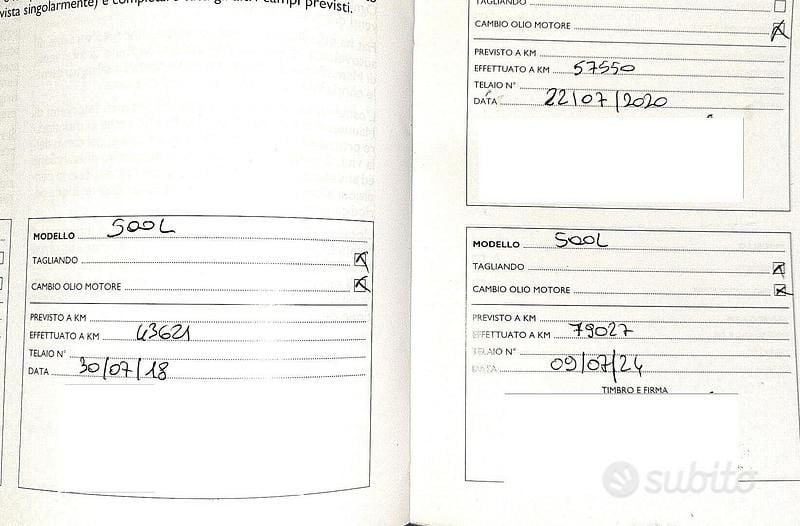 vista singolarmente) e
campi previsti.
MODELLO 500L
TAGLIANDO
CAMBIO OLIO MOTORE
PREVISTO A KM
EFFETTUATO A KM 43621
TELAIO N°
DATA 30/07/18
TAGLIANDO
CAMBIO OLIO MOTORE
PREVISTO A KM
EFFETTUATO A KM 57550
TELAIO N°
DATA 22/07/2020
MODELLO 500L
TAGLIANDO
CAMBIO OLIO MOTORE
PREVISTO A KM
EFFETTUATO A KM 79027
TELAIO N°
DATA 09/07/24
TIMBRO E FIRMA
subito